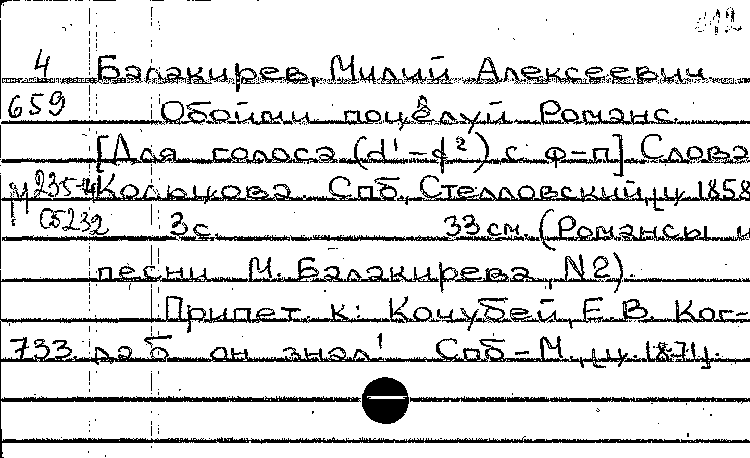 112
4 Балакирев, Милий Алексеевич
659 Обойми поцелуй Романс.
[Для голоса (d¹–f²) с ф-п] Слова
М 235-4 Кольцова. Спб, Стелловский, ц. 1858
Сб232 3с. 33см. (Романсы и
песни М. Балакирева, N2).
Приплет к: Кочубей, Е.В. Ког-
733. да б он знал! Спб–М., [ц. 1871].